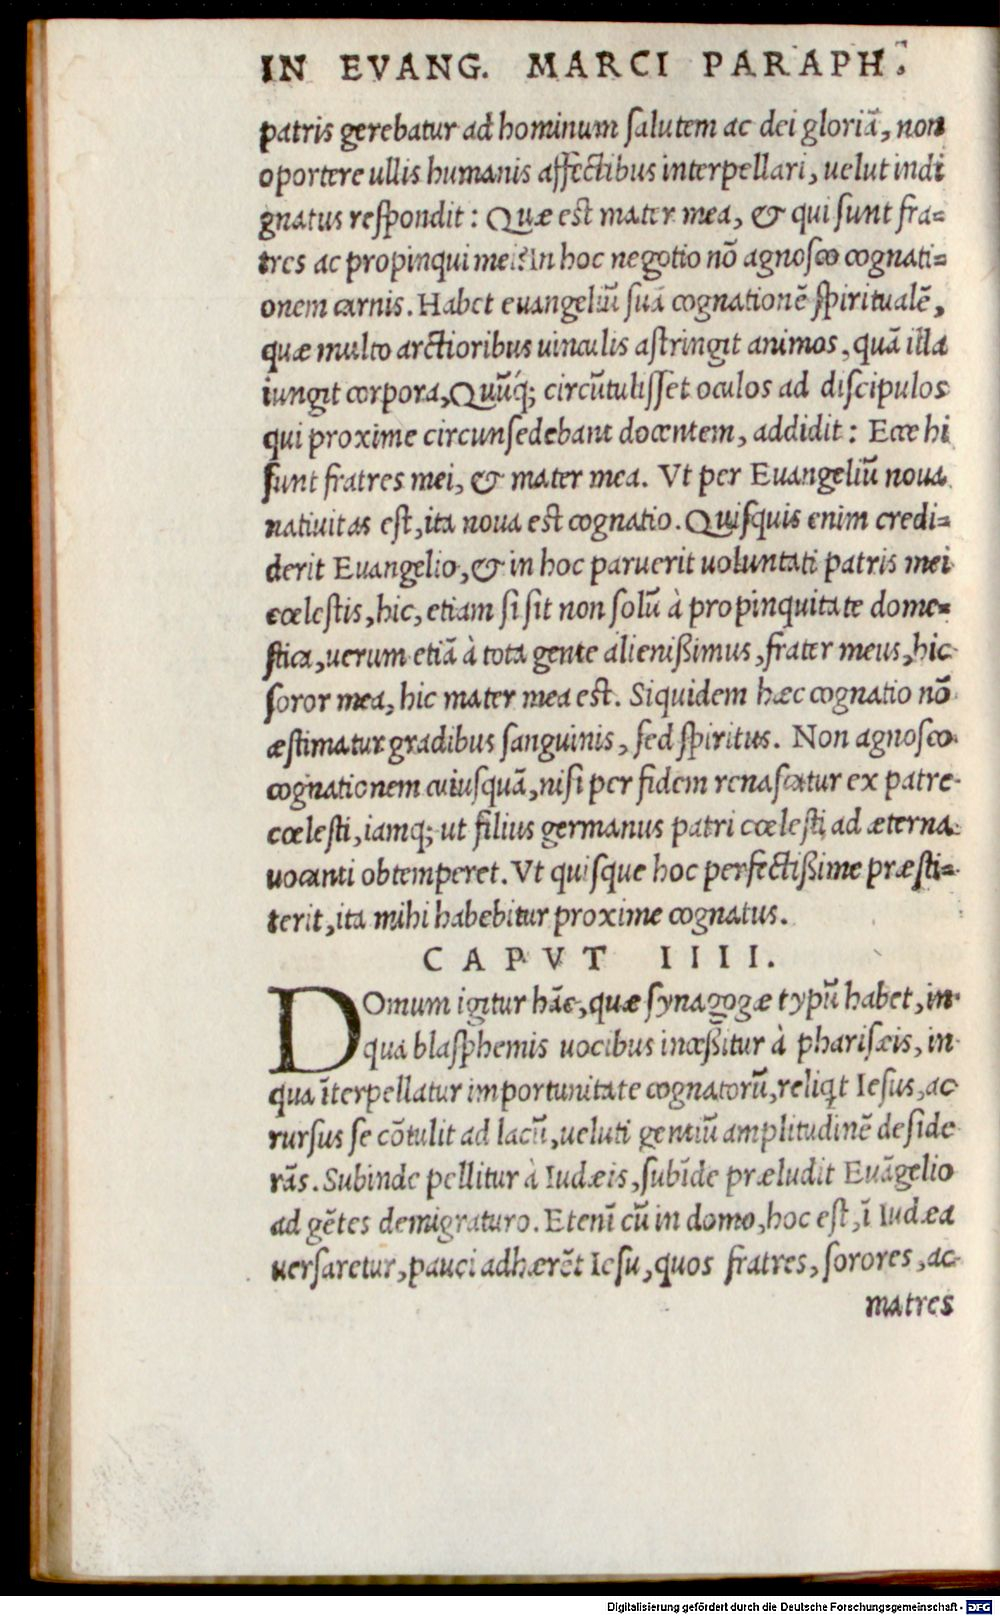 IN EVANG. MARCI PARAPH.
patris gerebatur ad hominum ſalutem ac dei gloriã, non
oportere ullis humanis affectibus interpellari, uelut indi
gnatus reſpondit: Quæ est mater mea, & qui ſunt fra=
tres ac propinqui mei? In hoc negotio nõ agnoſco cognati=
onem carnis. Habet euangeliũ ſuã cognationẽ ſpiritualẽ,
quæ multo arctioribus uinculis aſtringit animos, quã illa
iungit corpora, Quũq́; circũtuliſſet oculos ad diſcipulos
qui proxime circunſedebant docentem, addidit: Ecce hi
ſunt fratres mei, & mater mea. Vt per Euangeliũ noua
natiuitas eſt, ita noua est cognatio. Quiſquis enim credi=
derit Euangelio, & in hoc paruerit uoluntati patris mei
cœleſtis, hic, etiam ſi ſit non ſolũ à propinquitate dome=
ſtica, uerum etiã à tota gente alienißimus, frater meus, hic
ſoror mea, hic mater mea est. Siquidem hæc cognatio nõ
æſtimatur gradibus ſanguinis, ſed ſpiritus. Non agnoſco
cognationem cuiuſquã, niſi per fidem renaſcatur ex patre
cœleſti, iamq; ut filius germanus patri cœleſti ad æterna
uocanti obtemperet. Vt quiſque hoc perfectißime præſti=
terit, ita mihi habebitur proxime cognatus.
CAPVT IIII.
DOmum igitur hãc, quæ ſynagogæ typũ habet, in
qua blaſphemis uocibus inceßitur à phariſæis, in
qua ĩterpellatur importunitate cognatorũ, reliq̃t Ieſus, ac
rurſus ſe cõtulit ad lacũ, ueluti gentiũ amplitudinẽ deſide
rãs. Subinde pellitur à Iudæis, ſubĩde præludit Euãgelio
ad gẽtes demigraturo. Etenĩ cũ in domo, hoc eſt, ĩ Iudæa
uerſaretur, pauci adhærẽt Ieſu, quos fratres, ſorores, ac
matres
Digitalisierung gefördert durch die Deutsche Forschungsgemeinschaft - DFG